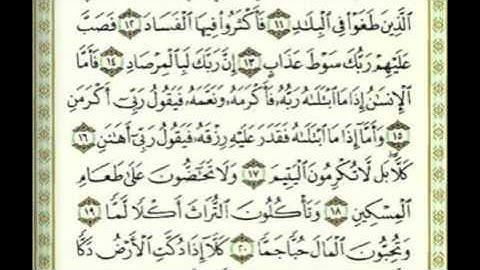 ٱلَّذِينَ طَغَوْا۟ فِى ٱلْبِلَٰدِ ١١ فَأَكْثَرُوا۟ فِيهَا ٱلْفَسَادَ ١٢ فَصَبَّ
عَلَيْهِمْ رَبُّكَ سَوْطَ عَذَابٍ ١٣ إِنَّ رَبَّكَ لَبِٱلْمِرْصَادِ ١٤ فَأَمَّا
ٱلْإِنسَٰنُ إِذَا مَا ٱبْتَلَىٰهُ رَبُّهُۥ فَأَكْرَمَهُۥ وَنَعَّمَهُۥ فَيَقُولُ رَبِّىٓ أَكْرَمَنِ
١٥ وَأَمَّآ إِذَا مَا ٱبْتَلَىٰهُ فَقَدَرَ عَلَيْهِ رِزْقَهُۥ فَيَقُولُ رَبِّىٓ أَهَٰنَنِ ١٦
كَلَّا ۖ بَل لَّا تُكْرِمُونَ ٱلْيَتِيمَ ١٧ وَلَا تَحَٰٓضُّونَ عَلَىٰ طَعَامِ
ٱلْمِسْكِينِ ١٨ وَتَأْكُلُونَ ٱلتُّرَاثَ أَكْلًا لَّمًّا ١٩
وَتُحِبُّونَ ٱلْمَالَ حُبًّا جَمًّا ٢٠ كَلَّآ إِذَا دُكَّتِ ٱلْأَرْضُ دَكًّا